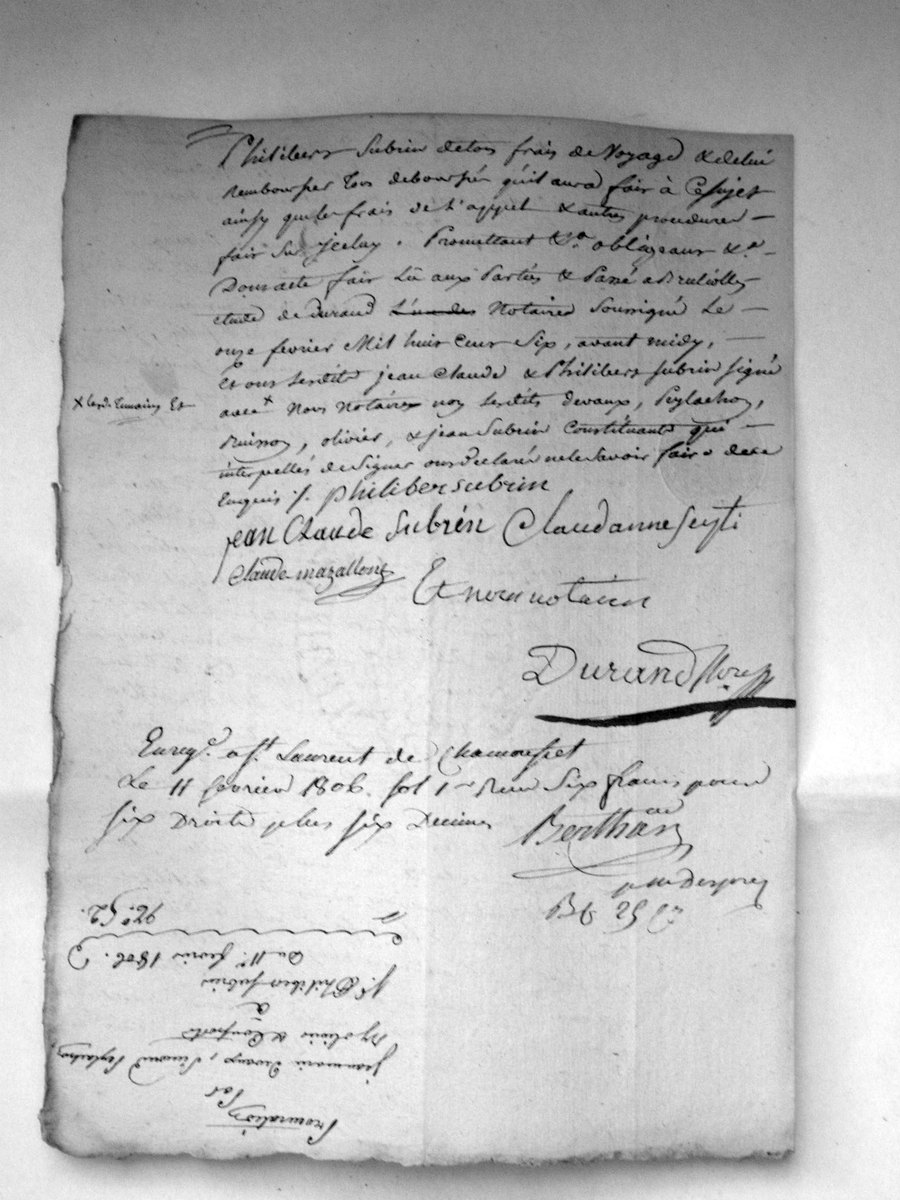 Philibert Subrin de tous frais de Voyage & de lui
rembourser tous deboursés qu'il aura fair à Ce sujet
ainsy que les frais de l'appel & autres procedures –
fair Sur Jceluy. Promettant &a. obligeant &a. –
Dont acte fair Lû aux Parties & Passé a Brulliolles
etude de Durand L'un des Notaires Soussigné Le –
onze fevrier Mil huit Cent Six, avant midy, –
Et ont lesdits jean Claude & Philibert Subrin signé
avec x Nous Notaires non lesdits Devaux, Peylachon,
x lesd. temoins Et
Buisson, olivier, & jean Subrin Constituants qui –
interpellés de Signer ont declaré ne le Savoir faire de ce
Enquis /. philiber subrin
jean Claude Subrén Claudanne
Claude mazallong
Et nous notaires
Durand Nore
Enregé. a St. Laurent de Chamousset
Le 11 fevrier 1806. fol 1 Reçu Six francs pour
six Droits plus six Decimes
Berthaud
Procuration
Par
jeanmarie Devaux, Peylachon,
olivier & Consorts
à
Sr. Philibert Subrin
Du 11e. fevrier 1806.